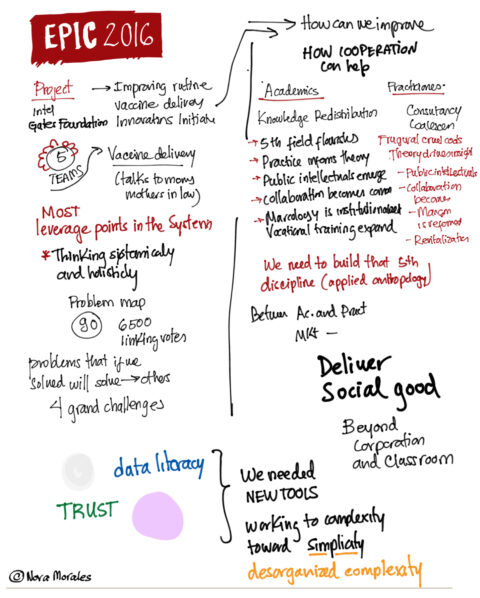 EPIC 2016
Project → Improving rutine
Intel vaccine delivery
Gates Foundation Innovators Initiate
5
TEAMS → Vaccine delivery
(talks to moms
mothers in law)
MOST
leverage points in the System
* Thinking systemically
and holisticly
Problem map
90 6500
linking votes
problems that if we
solved will solve → others
4 grand challenges
data literacy
TRUST
@Nora Morales
→ How can we improve
HOW COOPERATION
can help
Academics
Knowledge Redistribution
→ 5th field flourishs
→ Practice informs theory
→ Public intellectuals emerge
→ Collaboration becomes common
→ is institutionalized
Vocational training expand
Practitioners.
Consultancy
Frugural
Theory driven insight
- Public intellectuals
- collaboration
becomes
- Margin
is reformed
- Revitalization
We need to build that 5th
discipline (applied anthropology)
Between Ac. and Pract
Mkt —
Deliver
Social good
Beyond
Corporation
and Classroom
We needed
NEW TOOLS
working to complexity
toward Simplicity
desorganized complexity